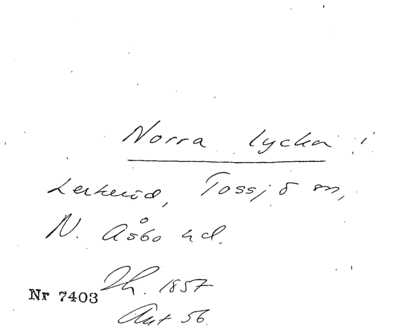 Norra lyckan
Lerkeröd, Tossjö sn,
N. Åsbo hd.
Nr 7403
Lh. 1857
Ant 56.